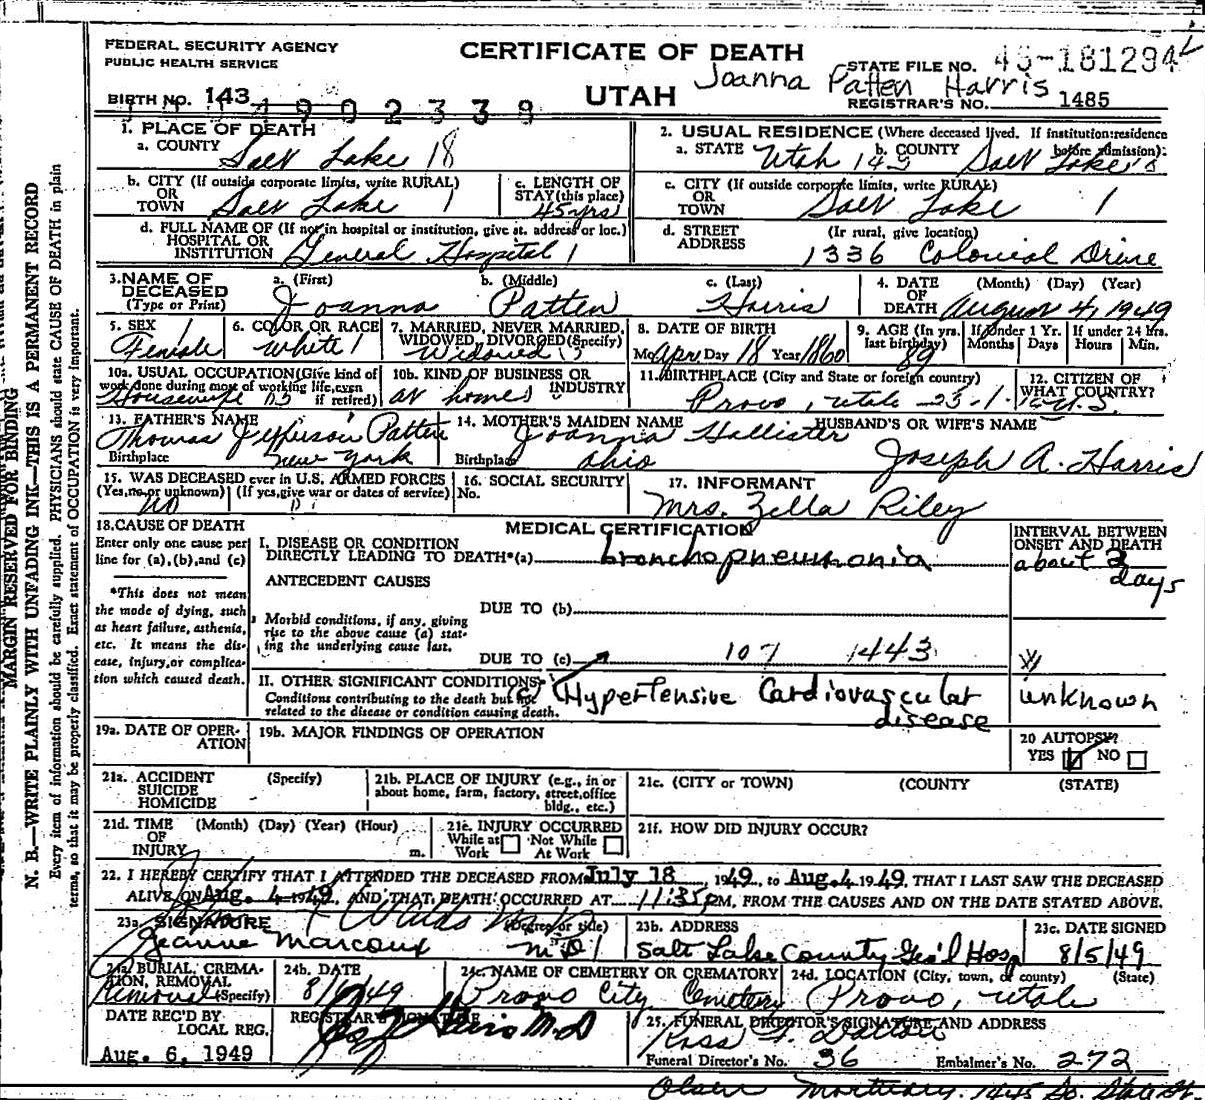 FEDERAL SECURITY AGENCY
PUBLIC HEALTH SERVICE
CERTIFICATE OF DEATH
UTAH
Joanna Patten Harris
STATE FILE NO. 49-181294
BIRTH NO. 143
4902339
REGISTRAR'S NO. 1485
MARGIN RESERVED FOR BINDING
N. B.—WRITE PLAINLY WITH UNFADING INK—THIS IS A PERMANENT RECORD
Every item of information should be carefully supplied. PHYSICIANS should state CAUSE OF DEATH in plain
terms, so that it may be properly classified. Exact statement of OCCUPATION is very important.
1. PLACE OF DEATH
a. COUNTY Salt Lake 18
2. USUAL RESIDENCE (Where deceased lived. If institution:residence before admission):
a. STATE Utah 143 b. COUNTY Salt Lake 18
b. CITY (If outside corporate limits, write RURAL)
OR
TOWN Salt Lake 1
c. LENGTH OF
STAY (this place)
45 yrs
c. CITY (If outside corporate limits, write RURAL)
OR
TOWN Salt Lake 1
d. FULL NAME OF (If not in hospital or institution, give st. address or loc.)
HOSPITAL OR
INSTITUTION General Hospital 1
d. STREET
ADDRESS (If rural, give location)
1336 Colonial Drive
3. NAME OF
DECEASED
(Type or Print)
a. (First) Joanna
b. (Middle) Patten
c. (Last) Harris
4. DATE
OF
DEATH
(Month) (Day) (Year)
August 4, 1949
5. SEX
Female
6. COLOR OR RACE
White 1
7. MARRIED, NEVER MARRIED,
WIDOWED, DIVORCED (Specify)
Widowed
8. DATE OF BIRTH
Mo. Apr. Day 18 Year 1860
9. AGE (In yrs.
last birthday)
89
If Under 1 Yr.
Months Days
If under 24 hrs.
Hours Min.
10a. USUAL OCCUPATION (Give kind of
work done during most of working life, even
if retired)
Housewife
10b. KIND OF BUSINESS OR
INDUSTRY
at home
11. BIRTHPLACE (City and State or foreign country)
Provo, Utah
12. CITIZEN OF
WHAT COUNTRY?
U.S.
13. FATHER'S NAME
Thomas Jefferson Patten
Birthplace New York
14. MOTHER'S MAIDEN NAME
Joanna Hollister
Birthplace Ohio
HUSBAND'S OR WIFE'S NAME
Joseph A. Harris
15. WAS DECEASED ever in U.S. ARMED FORCES
(Yes, no, or unknown) (If yes, give war or dates of service)
No
16. SOCIAL SECURITY
No.
17. INFORMANT
Mrs. Zella Riley
18. CAUSE OF DEATH
Enter only one cause per
line for (a), (b), and (c)
*This does not mean
the mode of dying, such
as heart failure, asthenia,
etc. It means the dis-
ease, injury, or complica-
tion which caused death.
MEDICAL CERTIFICATION
I. DISEASE OR CONDITION
DIRECTLY LEADING TO DEATH*(a) bronchopneumonia
INTERVAL BETWEEN
ONSET AND DEATH
about 3 days
ANTECEDENT CAUSES
DUE TO (b)
Morbid conditions, if any, giving
rise to the above cause (a) stat-
ing the underlying cause last.
DUE TO (c) 107 1443
II. OTHER SIGNIFICANT CONDITIONS
Conditions contributing to the death but not
related to the disease or condition causing death.
(c) Hypertensive Cardiovascular
disease
unknown
19a. DATE OF OPER-
ATION
19b. MAJOR FINDINGS OF OPERATION
20 AUTOPSY?
YES NO
21a. ACCIDENT
SUICIDE
HOMICIDE
(Specify)
21b. PLACE OF INJURY (e.g., in or
about home, farm, factory, street, office
bldg., etc.)
21c. (CITY or TOWN) (COUNTY) (STATE)
21d. TIME
OF
INJURY
(Month) (Day) (Year) (Hour)
m.
21e. INJURY OCCURRED
While at Work Not While At Work
21f. HOW DID INJURY OCCUR?
22. I HEREBY CERTIFY THAT I ATTENDED THE DECEASED FROM July 18, 1949, to Aug. 4 1949, THAT I LAST SAW THE DECEASED
ALIVE ON Aug. 4 1949, AND THAT DEATH OCCURRED AT 11:35 PM, FROM THE CAUSES AND ON THE DATE STATED ABOVE.
23a. SIGNATURE (Degree or title)
Jeanne Marcoux M.D.
23b. ADDRESS
Salt Lake County Gen'l Hosp
23c. DATE SIGNED
8/5/49
24a. BURIAL, CREMA-
TION, REMOVAL
(Specify)
Removal
24b. DATE
24c. NAME OF CEMETERY OR CREMATORY
Provo City Cemetery
24d. LOCATION (City, town, or county) (State)
Provo, Utah
DATE REC'D BY
LOCAL REG.
Aug. 6, 1949
REGISTRAR'S SIGNATURE
M.D
25. FUNERAL DIRECTOR'S SIGNATURE AND ADDRESS
Funeral Director's No. 36 Embalmer's No. 272
Olsen Mortuary 1445 So. State St.